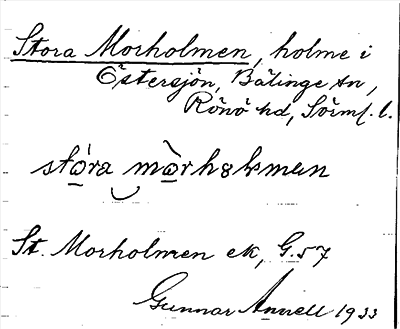 Stora Morholmen, holme i
Östersjön, Bälinge sn,
Rönö hd, Sörml. l.
stóra mòrhȣlmen
St. Morholmen ek, G. 57
Gunnar Annell 1933